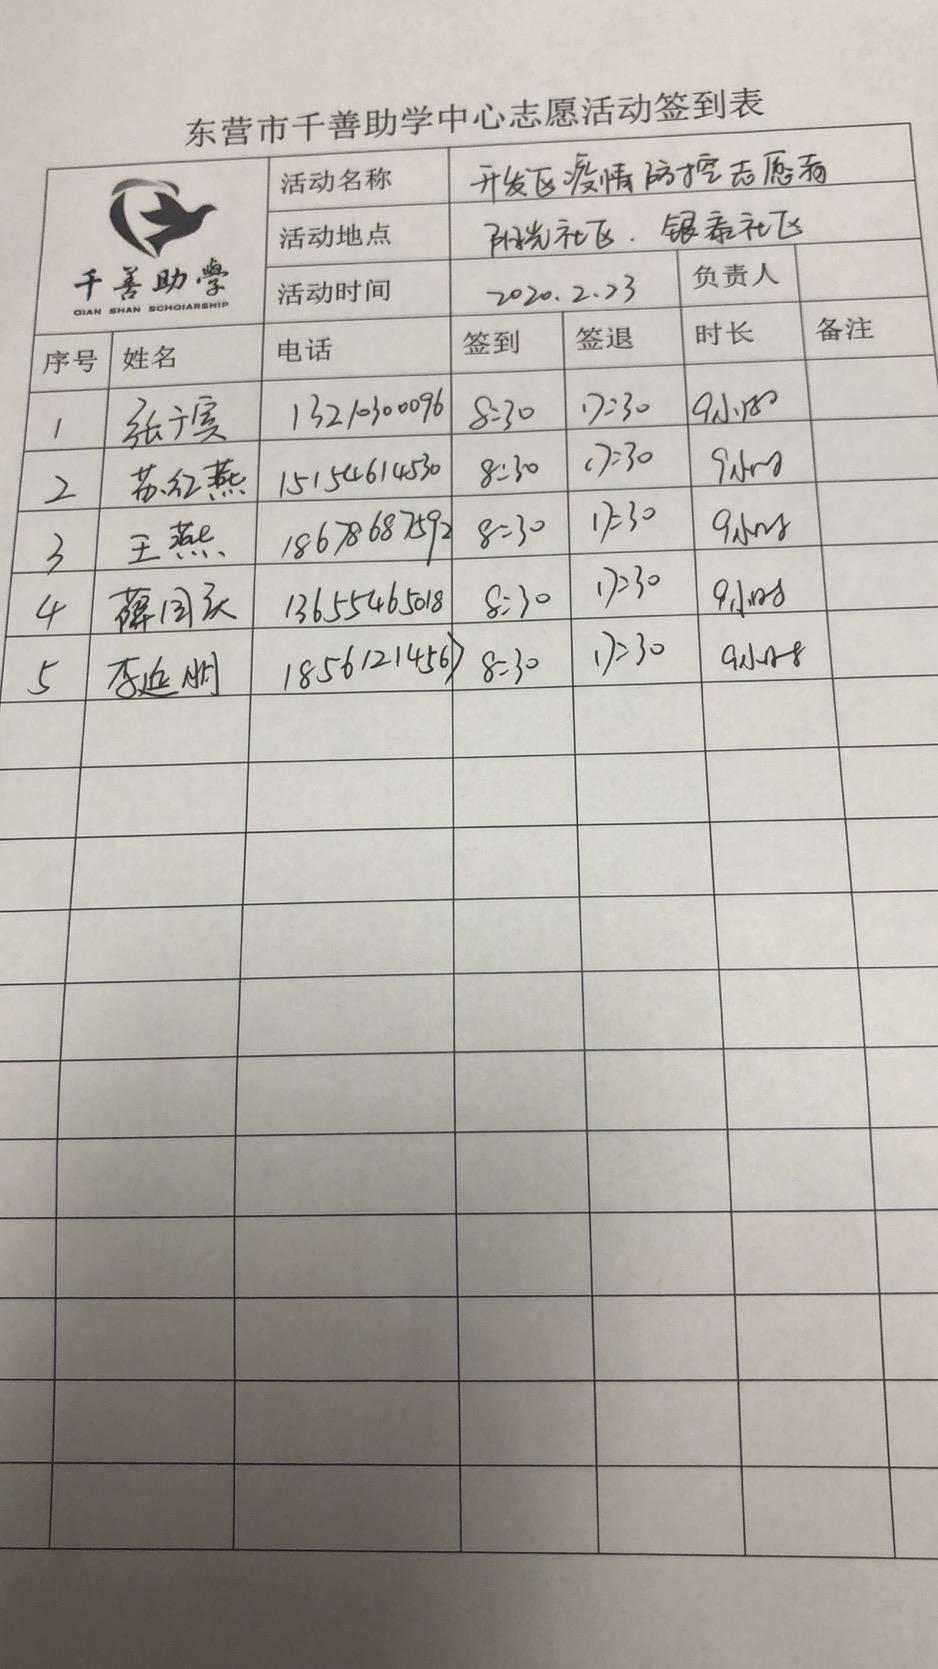 东营市千善助学中心志愿活动签到表
千善助學
QIAN SHAN SCHOIARSHIP
活动名称 开发区疫情防控志愿者
活动地点 阳光社区. 银泰社区
活动时间 2020.2.23 负责人
序号 姓名 电话 签到 签退 时长 备注
1 张于寅 13210300096 8:30 17:30 9小时
2 苏红燕 15154614530 8:30 17:30 9小时
3 王燕 18678687592 8:30 17:30 9小时
4 薛国庆 13655465018 8:30 17:30 9小时
5 李延明 18561214567 8:30 17:30 9小时